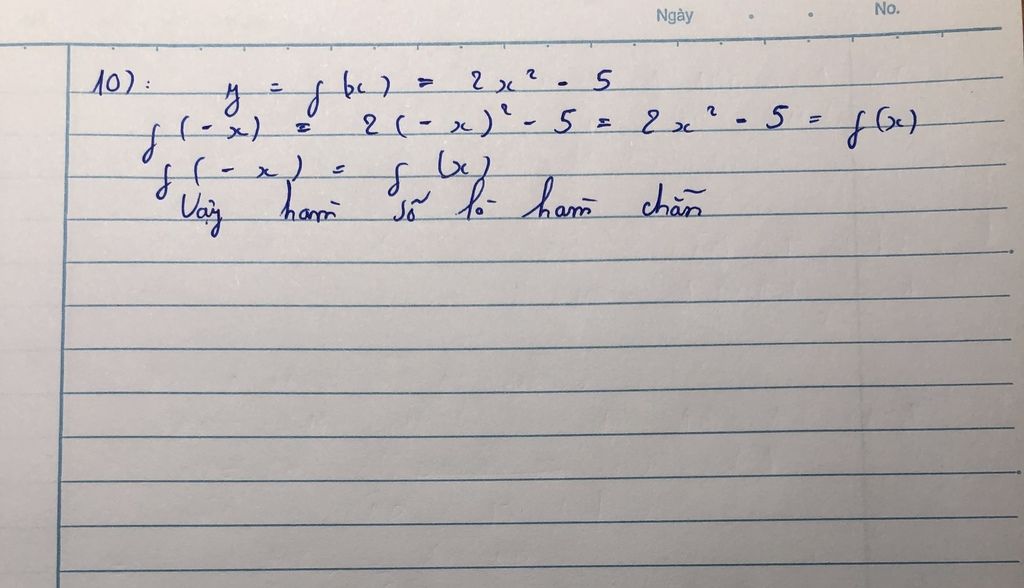 Ngày . . No.
10): y = f(x) = 2x² - 5
f(-x) = 2(-x)² - 5 = 2x² - 5 = f(x)
f(-x) = f(x)
Vậy hàm số là hàm chẵn